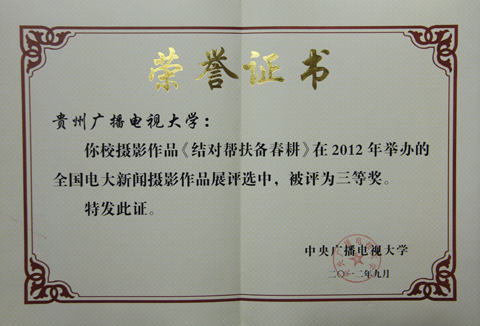 荣誉证书
贵州广播电视大学：
你校摄影作品《结对帮扶备春耕》在2012年举办的
全国电大新闻摄影作品展评选中，被评为三等奖。
特发此证。
中央广播电视大学
二〇一二年九月